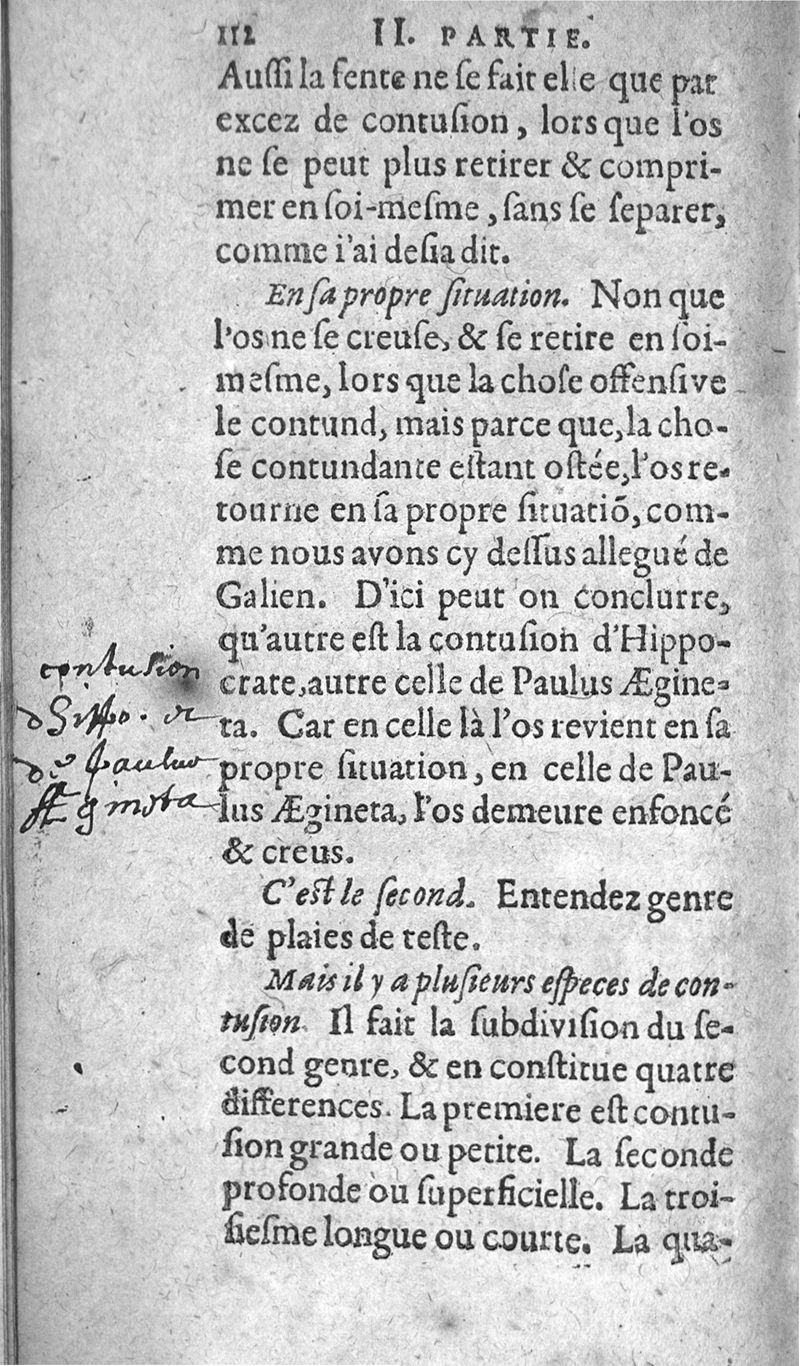 112 II. PARTIE.
Auſſi la fente ne ſe fait elle que par
excez de contuſion, lors que l'os
ne ſe peut plus retirer & compri-
mer en ſoi-meſme, ſans ſe ſeparer,
comme i'ai deſia dit.
En ſa propre ſituation. Non que
l'os ne ſe creuſe, & ſe retire en ſoi-
meſme, lors que la choſe offenſive
le contund, mais parce que, la cho-
ſe contundante eſtant oſtée, l'os re-
tourne en ſa propre ſituatiõ, com-
me nous avons cy deſſus allegué de
Galien. D'ici peut on conclurre,
qu'autre eſt la contuſion d'Hippo-
crate, autre celle de Paulus Ægine-
ta. Car en celle là l'os revient en ſa
propre ſituation, en celle de Pau-
lus Ægineta, l'os demeure enfoncé
& creus.
C'eſt le ſecond. Entendez genre
de plaies de teſte.
Mais il y a pluſieurs eſpeces de con-
tuſion. Il fait la ſubdiviſion du ſe-
cond genre, & en conſtitue quatre
differences. La premiere eſt contu-
ſion grande ou petite. La ſeconde
profonde ou ſuperficielle. La troi-
ſieſme longue ou courte. La qua-
contusion
d Hippo. et
de Paulus
Ægineta